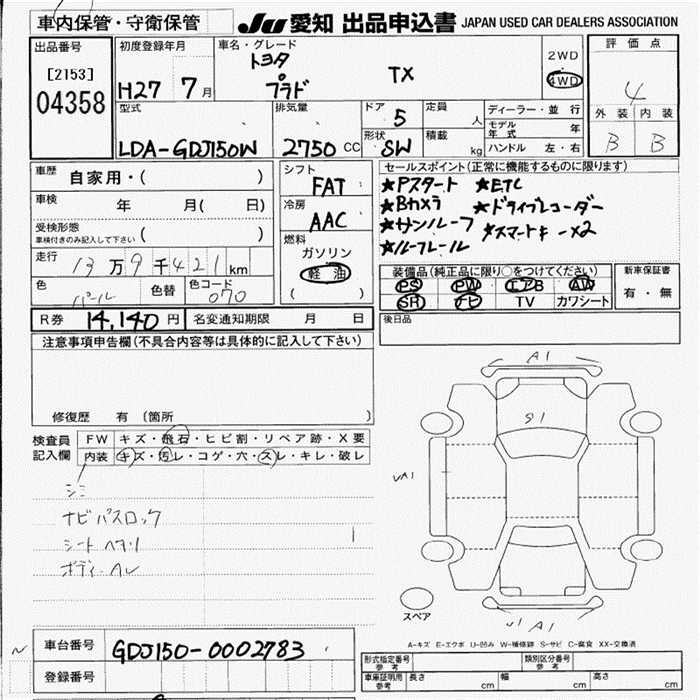 車内保管・守衛保管
JU 愛知 出品申込書 JAPAN USED CAR DEALERS ASSOCIATION
出品番号
[2153]
04358
初度登録年月
H27 7月
車名・グレード
トヨタ
プラド TX
2WD
4WD
評価点
4
外装 内装
B B
型式
LDA-GDJ150W
排気量
2750 CC
ドア
5
形状
SW
定員
人
積載
kg
ディーラー・並行
モデル年式 年
ハンドル 左・右
車歴 自家用・( )
車検 年 月( 日)
受検形態
車検付きのみ記入して下さい ( )
走行 13万9千421km
色 パール
色替
色コード 070
シフト
FAT
冷房
AAC
燃料
ガソリン
軽油
( )
セールスポイント(正常に機能するものに限ります)
★Pスタート ★ETC
★Bカメラ ★ドライブレコーダー
★サンルーフ ★スマートキーx2
★ルーフレール
装備品(純正品に限り○をつけてください)
PS PW エアB AW
SR ナビ TV カワシート
新車保証書
有・無
R券 14,140円 名変通知期限 月 日
後日品
注意事項申告欄(不具合内容等は具体的に記入して下さい)
修復歴 有 〔箇所 〕
検査員
記入欄
FW キズ・飛石・ヒビ割・リペア跡・X要
内装 キズ・汚レ・コゲ・穴・スレ・キレ・破レ
シミ
ナビパスロック
シートヘタリ
ボディーAレ
A1
S1
UA1
U1 A1
スペア
A-キズ E-エクボ U-凹み W-補修跡 S-サビ C-腐食 XX-交換済
車台番号 GDJ150-0002783
登録番号
形式指定番号
参考
類別区分番号
参考
車庫証明用
参考
長さ cm 幅 cm 高さ cm